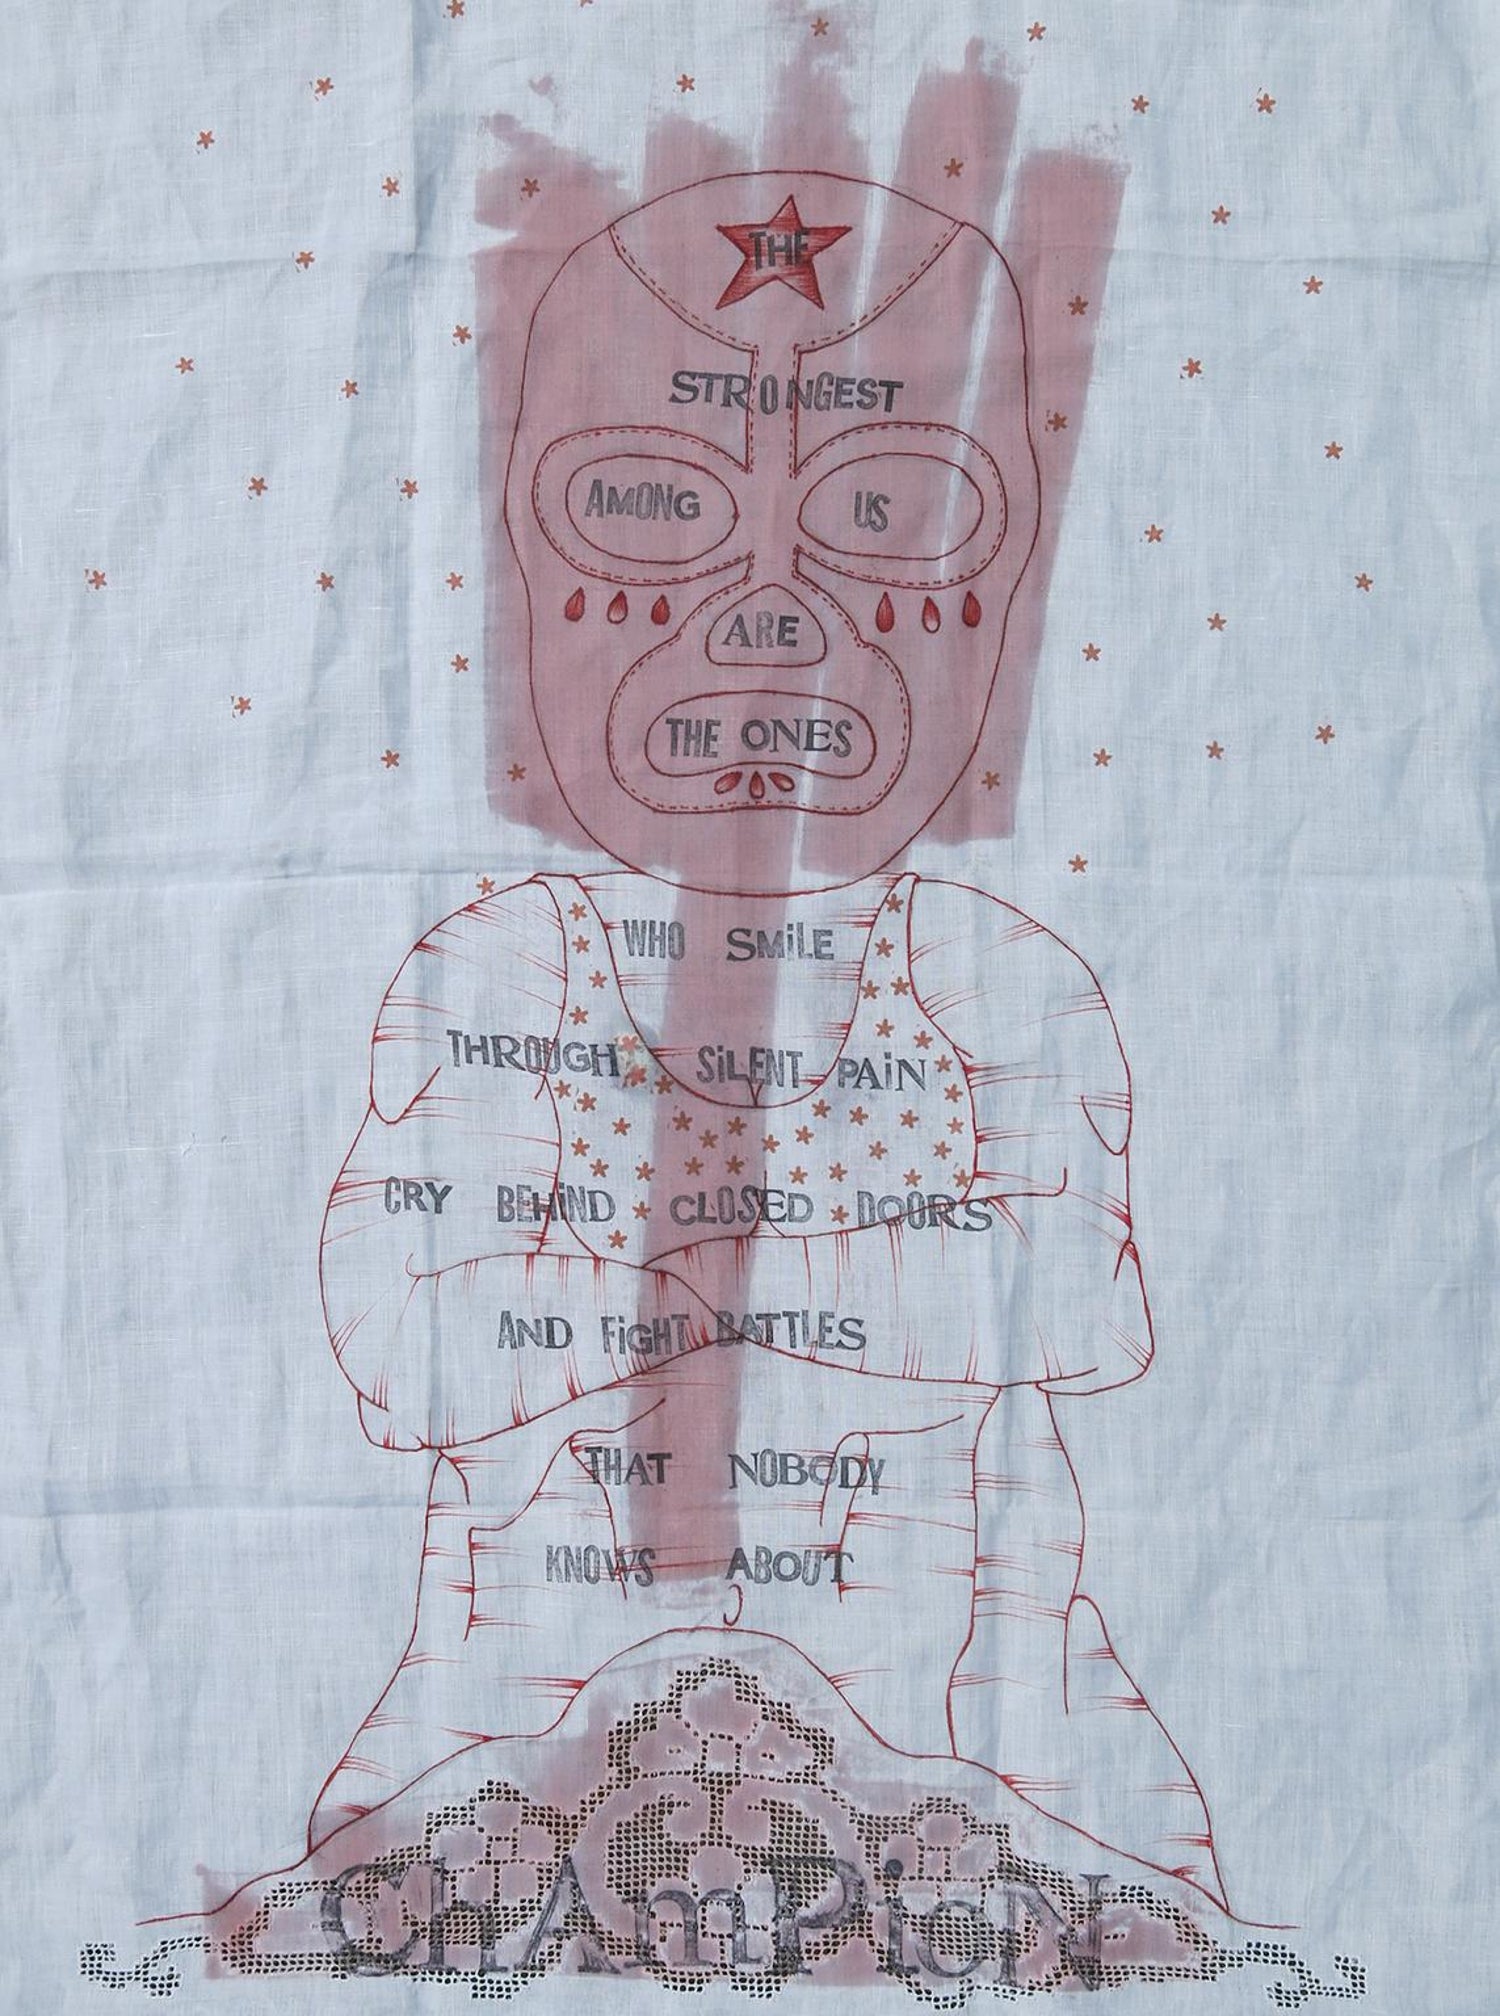 THE
STRONGEST
AMONG US
ARE
THE ONES
WHO SMiLE
THROUGH SiLENT PAiN
CRY BEHiND CLOSED DOORS
AND FiGHT BATTLES
THAT NOBODY
KNOWS ABOUT
ChAmPioN